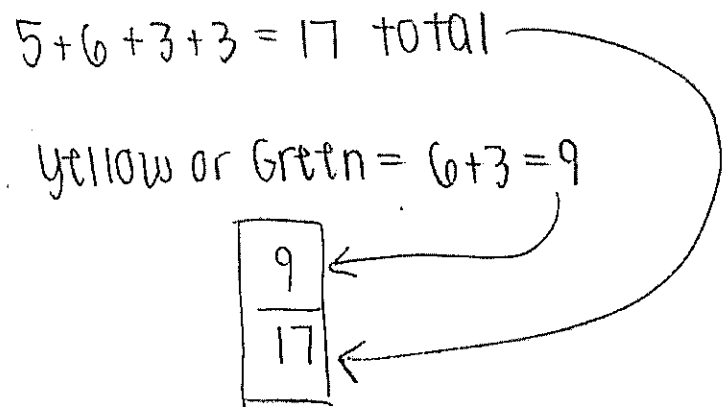 5+6+3+3 = 17 total
yellow or Green = 6+3=9
9
17